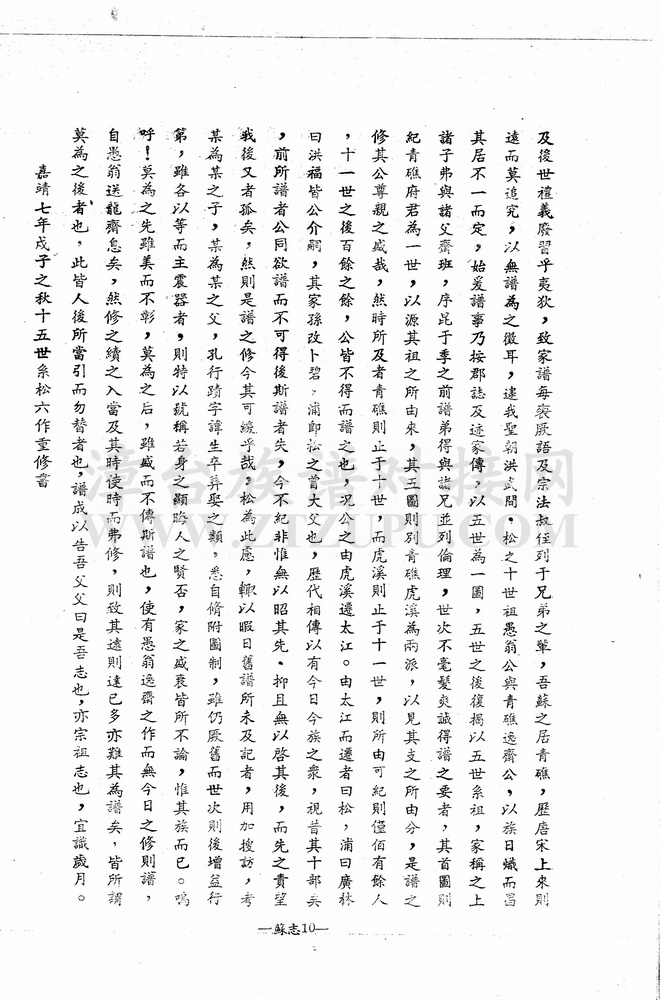 及後世禮義廢習乎夷狄，致家譜每褻厥語及宗法叔侄列于兄弟之輩，吾蘇之居青礁，歷唐宋上來則
遠而莫追究，以無譜為之徵耳，逮我聖朝洪武間．松之十世祖愚翁公與青礁逸齋公，以族日熾而昌
其居不一而定，始爰譜事乃按郡誌及迹家傳，以五世為一圖，五世之後復揭以五世系祖，家稱之上
諸子弗與諸父齋班，序昆于季之前譜弟得與諸兄並列倫理，世次不毫髮爽誠得譜之要者，其首圖則
紀青礁府君為一世，以源其祖之所由來，其五圖則別青礁虎溪為兩派，以見其支之所由分，是譜之
修其公尊親之盛哉，然時所及者青礁則止于十世，而虎溪則止于十一世，則所由可紀則僅佰有餘人
，十一世之後百餘之餘，公皆不得而譜之也，况公之由虎溪遷太江。由太江而遷者曰松，浦曰廣林
曰洪福皆公介嗣，其家孫改卜碧．浦即松之曾大父也，歷代相傳以有今日今族之衆，視昔其十部矣
，前所譜者公同欲譜而不可得後斯譜者失，今不紀非惟無以昭其先．抑且無以啓其後，而先之責望
我後又者孤矣，然則是譜之修今其可緩乎哉，松為此慮，輙以暇日舊譜所未及記者，用加搜訪，考
某為某之子，某為某之父，孔行蹟字諱生卒葬娶之類，悉自脩附圖制，雖仍厥舊而世次則後增益行
第，雖各以等而主震器者，則特以號稱若身之顯晦人之賢否，家之盛衰皆所不論，惟其族而已。嗚
呼！莫為之先雖美而不彰，莫為之后，雖盛而不傳斯譜也，使有愚翁逸齋之作而無今日之修則譜，
自愚翁送龍齋息矣，然修之續之入當及其時使時而弗修，則致其遠則達已多亦難其為譜矣，皆所謂
莫為之後者也，此皆人後所當引而勿替者也，譜成以告吾父父曰是吾志也，亦宗祖志也，宜識歲月。
嘉靖七年戊子之秋十五世系松六作重修書
漳台族譜对接网
WWW.ZTZUPU.COM
—蘇志10—